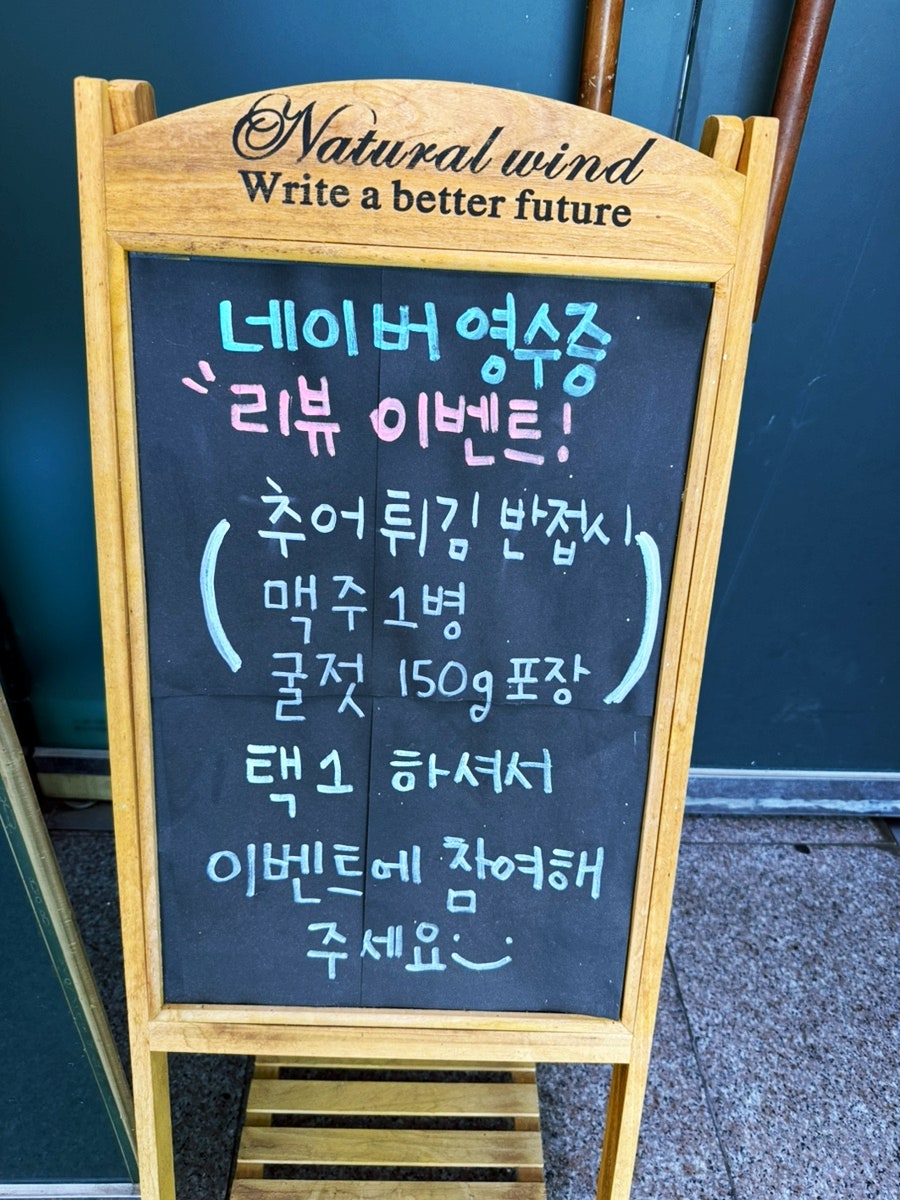 Natural wind
Write a better future
네이버 영수증
리뷰 이벤트!
(추어 튀김 반접시
맥주 1병
굴젓 150g 포장)
택1 하셔서
이벤트에 참여해
주세요